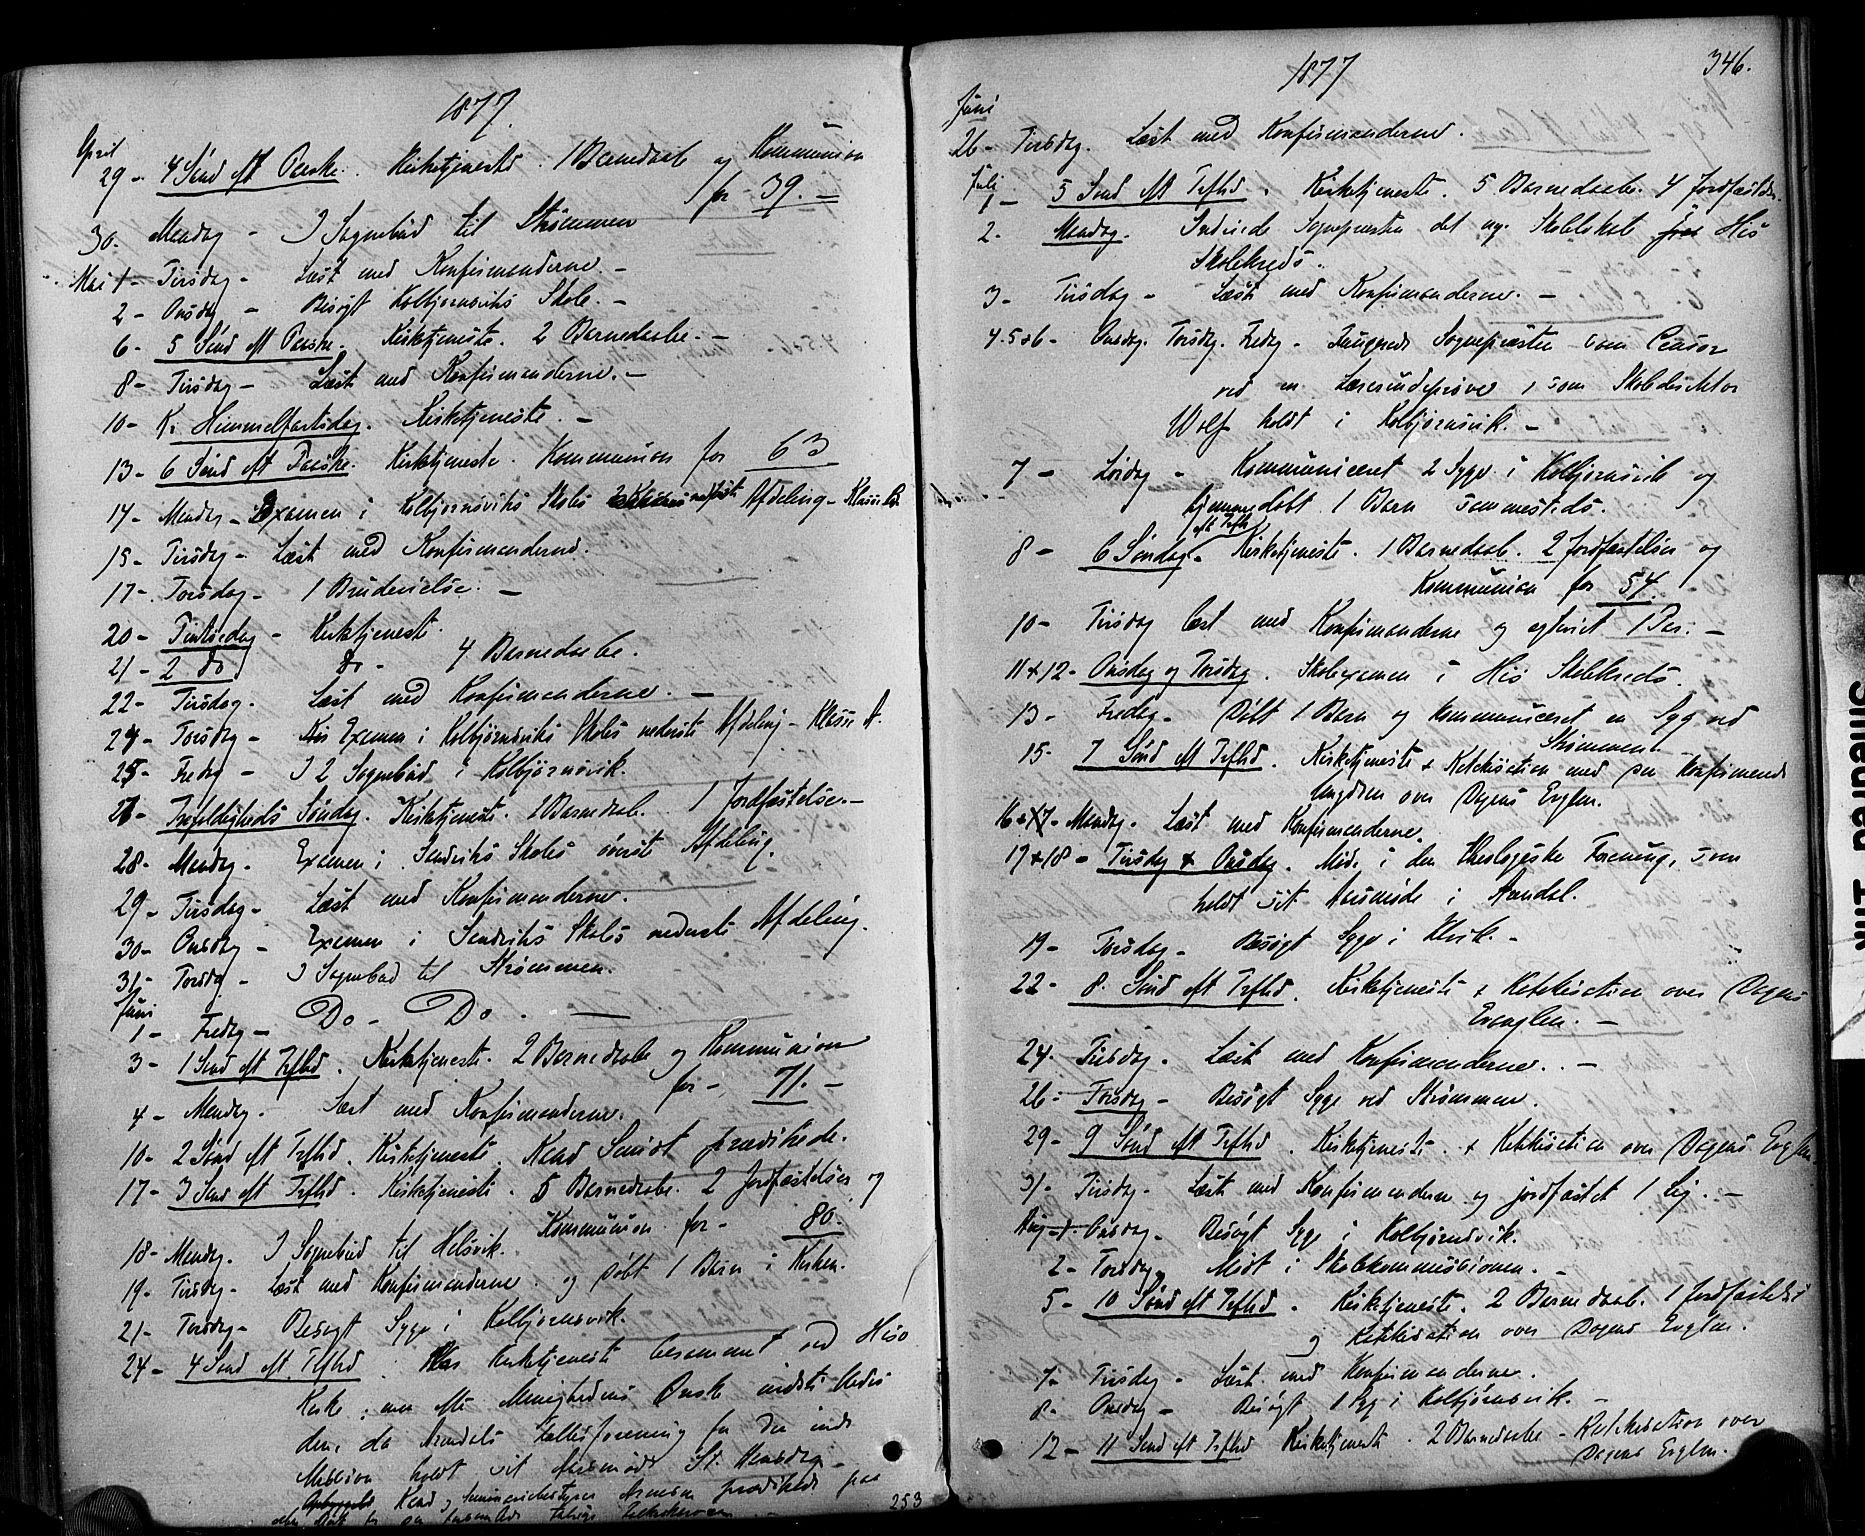 1877.
April
29 - 4 Sønd eft Paaske. Kirketjeneste. 1 Barnedaab og Kommunion
for 39. -
30. Mandag - I Sognebud til Strømmen
Mai 1 - Tirsdag - Læst med Konfirmanderne. -
2 - Onsdag - Besøgt Kolbjørnsviks Skole. -
6 - 5 Sønd eft Paaske. Kirketjeneste. 2 Barnedaabe. -
8 - Tirsdag - Læst med Konfirmanderne. -
10 - K. Himmelfartsdag. Kirketjeneste. -
13 - 6 Sønd eft Paaske. Kirketjeneste. Kommunion for 63
14 - Mandag - Examen i Kolbjørnsviks Skoles Afdeling - Klasse B.
15 - Tirsdag - Læst med Konfirmanderne.
17 - Torsdag - 1 Brudevielse. -
20 - Pintsedag - Kirketjeneste.
21 - 2 do do - 4 Barnedaabe.
22 - Tirsdag. Læst med Konfirmanderne. -
24 - Torsdag - Examen i Kolbjørnsviks Skoles nederste Afdeling - Klasse A.
25 - Fredag - I 2 Sognebud i Kolbjørnsvik.
27 - Trefoldigheds Søndag. Kirketjeneste. 2 Barnedaab. 1 Jordfæstelse. -
28 - Mandag. Examen i Sandviks Skoles øverste Afdeling.
29 - Tirsdag - Læst med Konfirmanderne.
30 - Onsdag - Examen i Sandviks Skoles nederste Afdeling.
31 - Torsdag - I Sognebud til Strømmen.
Juni
1 - Fredag - Do - Do. -
3 - 1 Sønd eft Trefhd. Kirketjeneste. 2 Barnedaabe og Kommunion
for - 71. -
4 - Mandag. Læst med Konfirmanderne.
10 - 2 Sønd eft Trefhd. Kirketjeneste. Kand Smidt prædikede.
17 - 3 Sønd eft Trefhd. Kirketjeneste. 5 Barnedaabe. 2 Jordfæstelser og
Kommunion for - 80.
18 - Mandag. I Sognebud til Helsvik.
19 - Tirsdag - Læst med Konfirmanderne og døbt 1 Barn i Kirken.
21 - Torsdag - Besøgt Syge i Kolbjørnsvik.
24 - 4 Sønd eft. Trefhd. Kirketjeneste berammet ved Hisø
Kirke; men efter Menighedens Ønske
den, da Arendals Fællesforening for den indre
Mission holdt sit Aarsmøde St. Hansdag -
Kand og Seminariebestyrer prædikede paa
253
1877
346.
Juni
26 - Tirsdag. Læst med Konfirmanderne.
Juli
1 - 5 Sønd eft Trefhd. Kirketjeneste. 5 Barnedaabe. 4 Jordfæstelser.
2. Mandag. Indviede Sognepræsten det nye Skolelokale Hisø
Skolekreds.
3 - Tirsdag - Læst med Konfirmanderne. -
4. 5 & 6 - Onsdag. Torsdag. Fredag - Fungerede Sognepræsten som Censor
ved en Lærerindeprøve, som Skoledirektør
Wolf holdt i Kolbjørnsvik. -
7 - Lørdag - Kommuniceret 2 Syge i Kolbjørnsvik og
hjemmedøbt 1 Barn sammesteds.
8 - 6 Søndag eft Trefh - Kirketjeneste. 1 Barnedaab. 2 Jordfæstelser og
Kommunion for 54.
10 - Tirsdag læst med Konfirmanderne og egteviet 1 Par. -
11 & 12 - Onsdag og Torsdag. Skoleexamen i Hisø Skolekreds.
13 - Fredag - Døbt 1 Barn og kommuniceret en Syg ved
Strømmen
15 - 7 Sønd eft Trefhd. Kirketjeneste & Katekisation med den konfirmerede
Ungdom over Dagens Evglm.
16 - Mandag. Læst med Konfirmanderne.
17 & 18 - Tirsdag & Onsdag. Møde i den theologiske Forening, som
holdt sit Aarsmøde i Arendal.
19 - Torsdag - Besøgt Syge i -
22 - 8. Sønd eft Trefhd. Kirketjeneste & Katekisation over Dagens
Evanglm. -
24. Tirsdag. Læst med Konfirmanderne. -
26 - Torsdag - Besøgt Syge ved Strømmen.
29 - 9 Sønd eft Trefhd. Kirketjeneste & Katekisation over Dagens Evglm
31 - Tirsdag - Læst med Konfirmanderne og jordfæstet 1 Lig. -
Aug - 1 - Onsdag - Besøgt Syge i Kolbjørnsvik.
2 - Torsdag. Mødt i Skolekommissionen. -
5 - 10 Sønd eft Trefhd. Kirketjeneste. 2 Barnedaab. 1 Jordfæstelse
og Katekisation over Dagens Evglm.
7 - Tirsdag - Læst med Konfirmanderne.
8. Onsdag - Besøgt 1 Syg i Kolbjørnsvik. -
12 - 11 Sønd eft Trefhd Kirketjeneste. 2 Barnedaabe - Katekisation over
Dagens Evglm. -